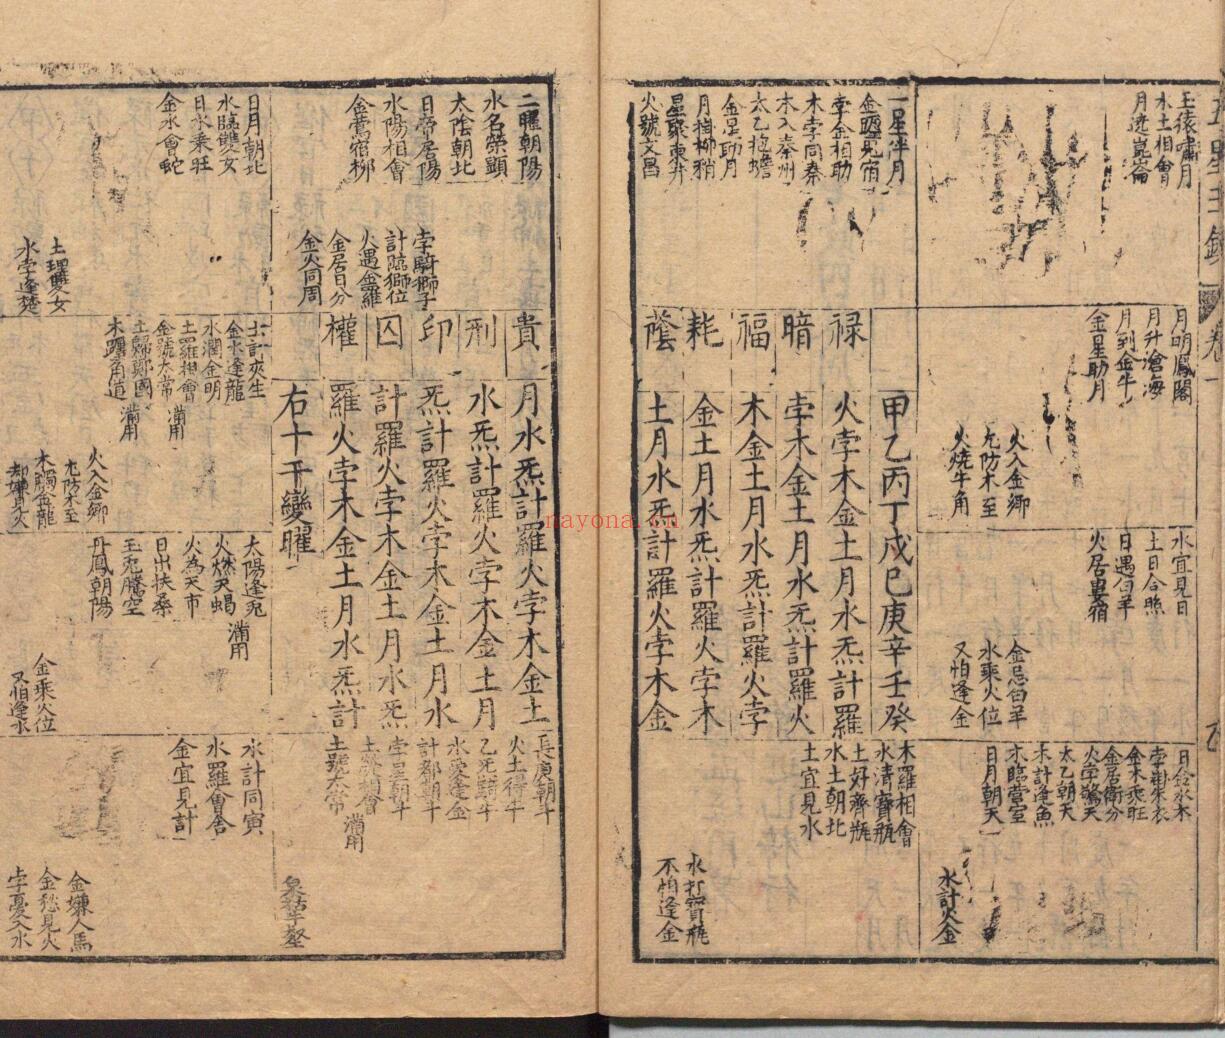 玉猿嘯月
水土相會
月進崑崙
月明鳳閣
月升滄海
月到金牛
金星助月
火入金鄉
尤防木至
火燒牛角
水宜見日
土日合照
日遇白羊
火居婁宿
金忌白羊
水乘火位
又怕逢金
日合水木
孛掛朱衣
金木乘旺
金居衛分
火孛驚天
太乙朝天
木計逢魚
木臨營室
日月朝天
水計火金
一星伴月
孛金相助
木孛同秦
木入秦州
太乙抱蟾
金星助月
月掛柳稍
星聚東井
火號文昌
甲乙丙丁戊巳庚辛壬癸
禄 火孛木金土月水炁計羅
暗 孛木金土月水炁計羅火
福 木金土月水炁計羅火孛
耗 金土月水炁計羅火孛木
蔭 土月水炁計羅火孛木金
木羅相會
水清寶瓶
土好齊瓶
水土朝北
土宜見水
水打寶瓶
不怕逢金
nayona.cn
二曜朝陽
水名榮顯
太陰朝北
日帝居陽
水陽相會
金鶯宿柳
孛騎獅子
計臨獅位
火遇金羅
金居日分
金火同周
貴 月水炁計羅火孛木金土
刑 水炁計羅火孛木金土月
印 炁計羅火孛木金土月水
囚 計羅火孛木金土月水炁
權 羅火孛木金土月水炁計
右十干變曜
長庚朝斗
火土得斗
乙炁騎斗
水愛逢金
計都朝斗
孛星朝斗
土號太常
日月朝北
水臨雙女
日水乘旺
金水會蛇
土埋雙女
水孛逢楚
土計夾生
金水逢龍
水潤金明
土羅相會
金號太常
土歸鄭國
木躔角道
火入金鄉
尤防木至
木觸金龍
却嫌見火
太陽逢兎
火燃天蝎
火為天市
日出扶桑
玉兎騰空
丹鳳朝陽
金乘火位
又怕逢水
水計同寅
水羅會舍
金宜見計
金嫌人馬
金愁見火
孛憂入水